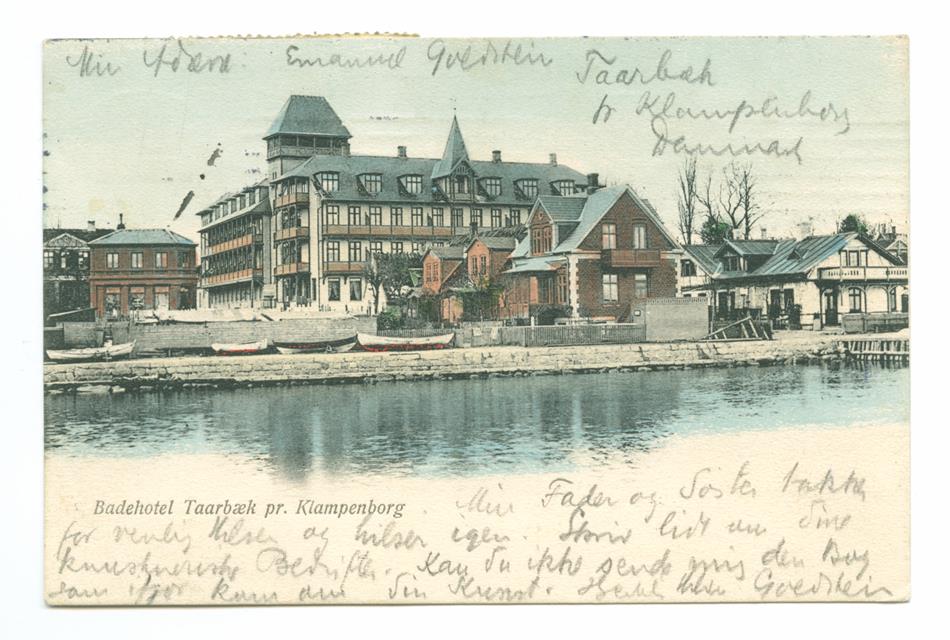 Min Adres. Emanuel Goldstein
Taarbæk
pr Klampenborg
Danmark
Badehotel Taarbæk pr. Klampenborg
Min Fader og Søster takke
for venlig Hilsen og hilser igen. Skriv lidt om dine
kunstneriske Bedrifter. Kan du ikke sende mig den Bog
som ifjor kom om din Kunst. Goldstein